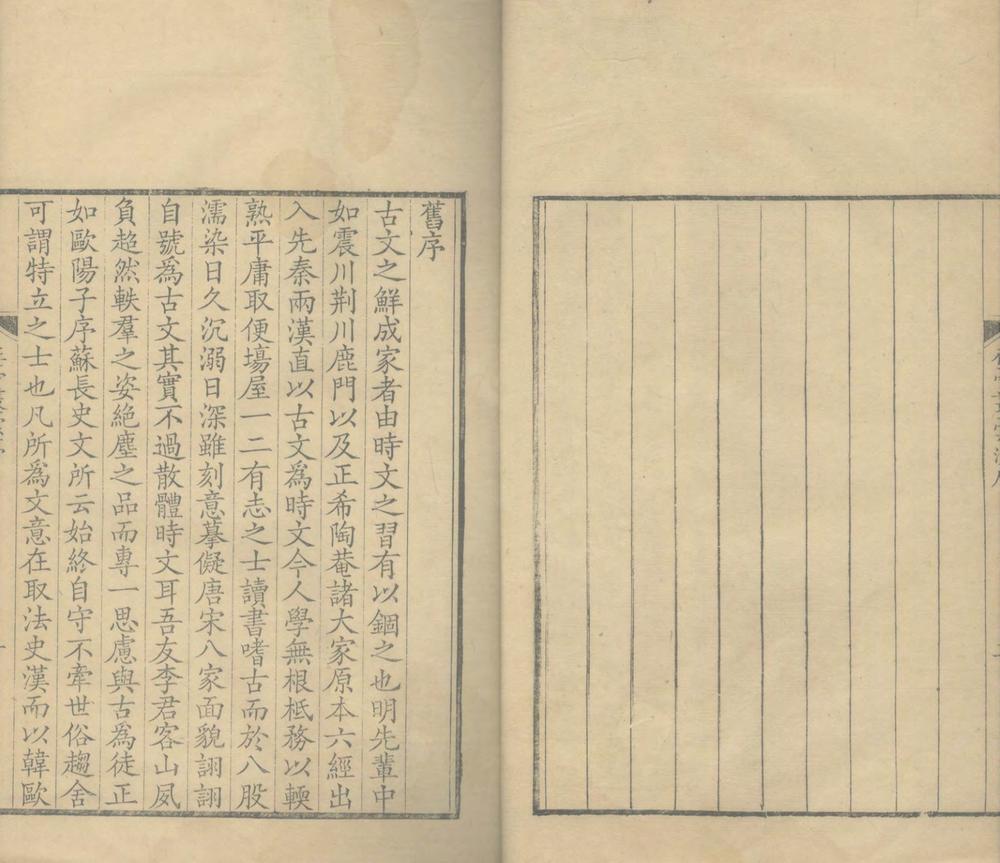 舊序
古文之鮮成家者由時文之習有以錮之也明先輩中
如震川荆川鹿門以及正希陶菴諸大家原本六經出
入先秦兩漢直以古文為時文今人學無根柢務以輭
熟平庸取便塲屋一二有志之士讀書嗜古而於八股
濡染日久沉溺日深雖刻意摹儗唐宋八家面貌詡詡
自號爲古文其實不過散體時文耳吾友李君客山夙
負超然軼羣之姿絶塵之品而專一思慮與古為徒正
如歐陽子序蘇長史文所云始終自守不牽世俗趨舍
可謂特立之士也凡所爲文意在取法史漢而以韓歐